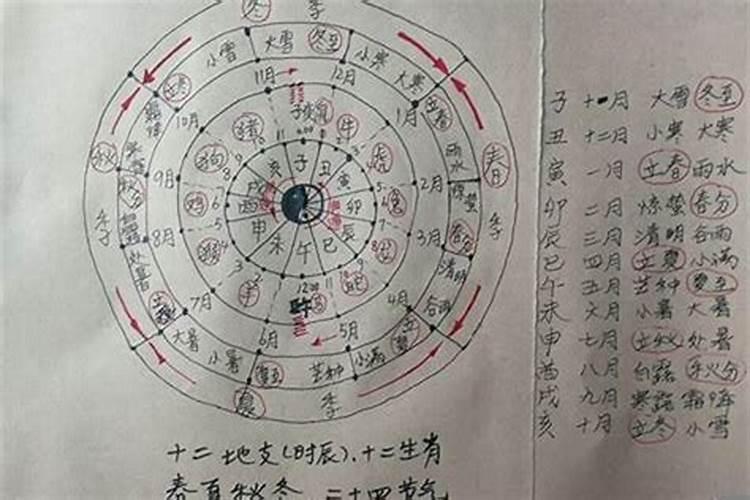 冬 季
小雪 大雪 冬至 小寒 大寒
立冬 11月 12月 立春
10月 子 鼠 1月 雨水
猪 牛
秋 狗 虎 春
9月 亥 子 丑 2月 惊蛰
秋分 戌 寅
鸡 酉 卯 兔
季 8月 申 辰 3月 春分 季
处暑 猴 未 午 巳 清明
立秋 羊 蛇 谷雨
7月 12:00 4月
大暑 午 马 立夏
小暑 6月 5月 小满
夏至 芒种
夏 季
子 十一月 大雪 冬至
丑 十二月 小寒 大寒
寅 一月 立春 雨水
卯 二月 惊蛰 春分
辰 三月 清明 谷雨
巳 四月 立夏 小满
午 五月 芒种 夏至
未 六月 小暑 大暑
申 七月 立秋 处暑
酉 八月 白露 秋分
戌 九月 寒露 霜降
亥 十月 立冬 小雪
十二地支(时辰)、十二生肖
春夏秋冬 二十四节气